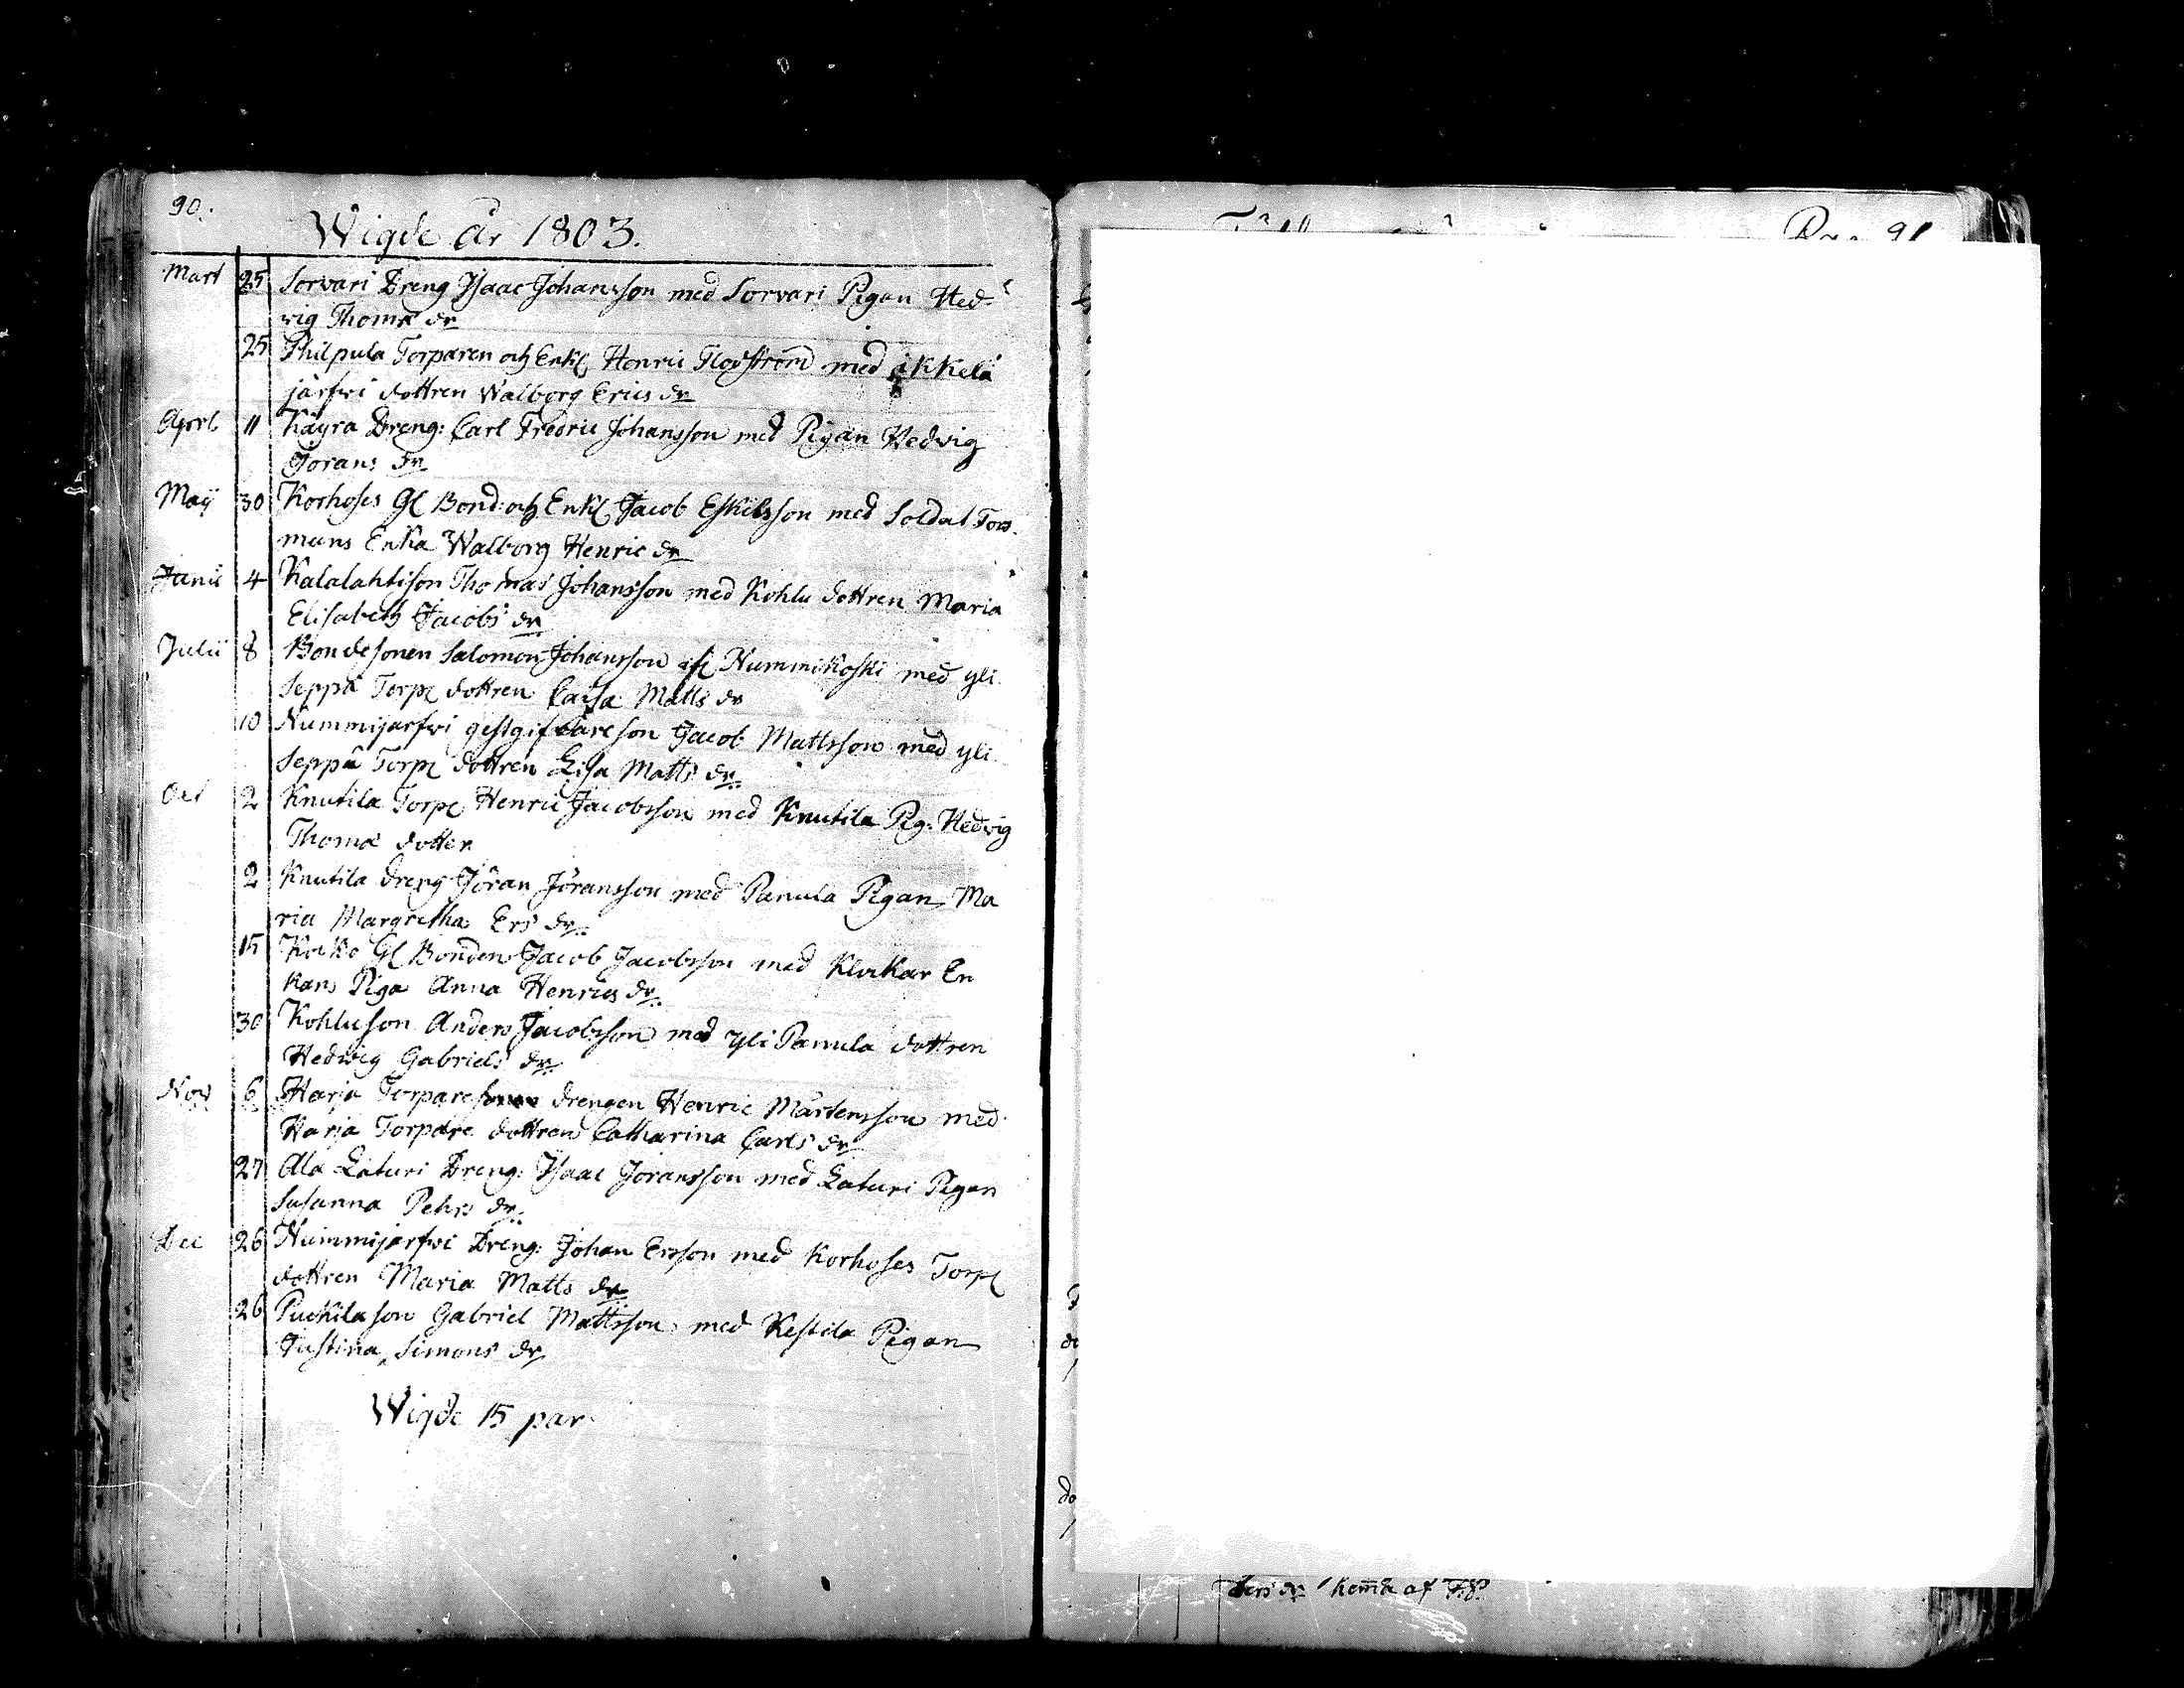 90.
Wigde år 1803.
Mart 25 Sorvari Dreng Isaac Johansson med Sorvari Pigan Hed-
vig Thomæ dr
25 Philpula Torparen och Enkl Henric Flodström med ikkelä
järfwi dottren Walborg Erics dr
Aprl 11 Käyrä Dreng: Carl Fredric Johansson med Pigan Hedvig
Jörans dr
Maij 30 Korhoses Gl Bond: och Enkl Jacob Eskilsson med Soldat
muns Enka Walborg Henric dr
Junii 4 Kalalahti son Thomas Johansson med Kohlu dottren Maria
Elisabeth Jacobs dr
Julii 8 Bondesonen Salomon Johansson ifr Nummikoski med yli
Seppä Torp dottren Caisa Matts dr
10 Nummijärfwi gestgifvare son Jacob Mattsson med yli
Seppä Torp dottren Lisa Matts dr.
Oct 2 Knutila Torp Henric Jacobsson med Knutila Pig: Hedvig
Thomæ dotter
2 Knutila dreng Jöran Jöransson med Panula Pigan Ma
ria Margretha Ers dr.
15 Gl Bonden Jacob Jacobsson med Klockar En
kans Piga Anna Henrics dr.
30 Kohluson Anders Jacobsson med yli Panula dottren
Hedwig Gabriels dr.
Nov 6 Harja Torpare drengen Henric Mårtensson med
Harja Torpare dottren Catharina Carls dr
27 Ala Laturi Dreng: Isaac Jöransson med Laturi Pigan
Susanna Pehrs dr.
Dec 26 Nummijärfwi Dreng: Johan Ersson med Korhoses Torp
dottren Maria Matts dr
26 Puckila son Gabriel Mattsson med Kestilä Pigan
Justina Simons dr
Wigde 15 par
91
dr kom̄da af